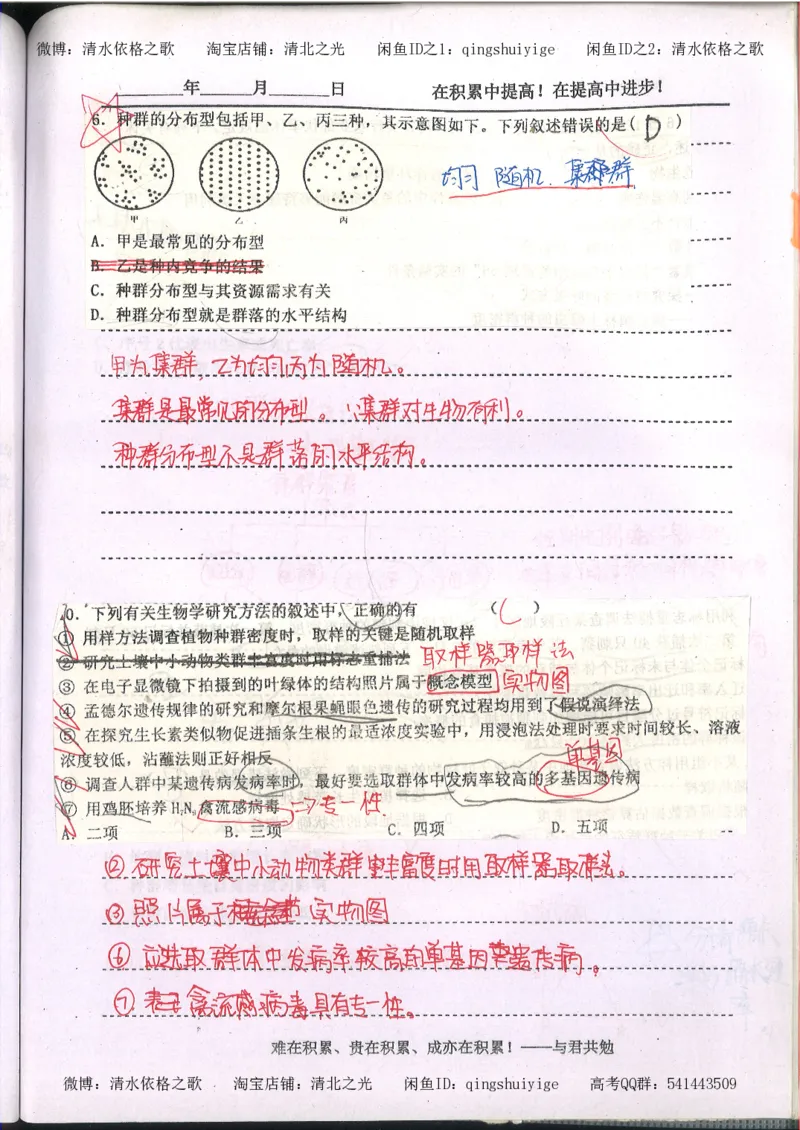 微博：清水依格之歌 淘宝店铺：清北之光 闲鱼ID之1：qingshuiyige 闲鱼ID之2：清水依格之歌
____年____月____日 在积累中提高！在提高中进步！
6．种群的分布型包括甲、乙、丙三种，其示意图如下。下列叙述错误的是( D )
均匀 随机、集群
甲 乙 丙
A．甲是最常见的分布型
B．乙是种内竞争的结果
C．种群分布型与其资源需求有关
D．种群分布型就是群落的水平结构
甲为集群，乙为均匀丙为随机。
集群是最常见的分布型。∵集群对生物有利。
种群分布型不是群落的水平结构。
0．下列有关生物学研究方法的叙述中，正确的有 （ C ）
① 用样方法调查植物种群密度时，取样的关键是随机取样
② 研究土壤中小动物类群丰富度时用标志重捕法 取样器取样法
③ 在电子显微镜下拍摄到的叶绿体的结构照片属于概念模型 实物图
④ 孟德尔遗传规律的研究和摩尔根果蝇眼色遗传的研究过程均用到了假说演绎法
⑤ 在探究生长素类似物促进插条生根的最适浓度实验中，用浸泡法处理时要求时间较长、溶液
浓度较低，沾蘸法则正好相反
单基因
⑥ 调查人群中某遗传病发病率时，最好要选取群体中发病率较高的多基因遗传病
⑦ 用鸡胚培养H₇N₉禽流感病毒 →专一性
A．二项 B．三项 C．四项 D．五项
② 研究土壤中小动物类群丰富度时用取样器取样法。
③ 照片属于实物图
⑥ 应选取群体中发病率较高的单基因遗传病。
⑦ 禽流感病毒具有专一性。
难在积累、贵在积累、成亦在积累！——与君共勉
微博：清水依格之歌 淘宝店铺：清北之光 闲鱼ID：qingshuiyige 高考QQ群：541443509